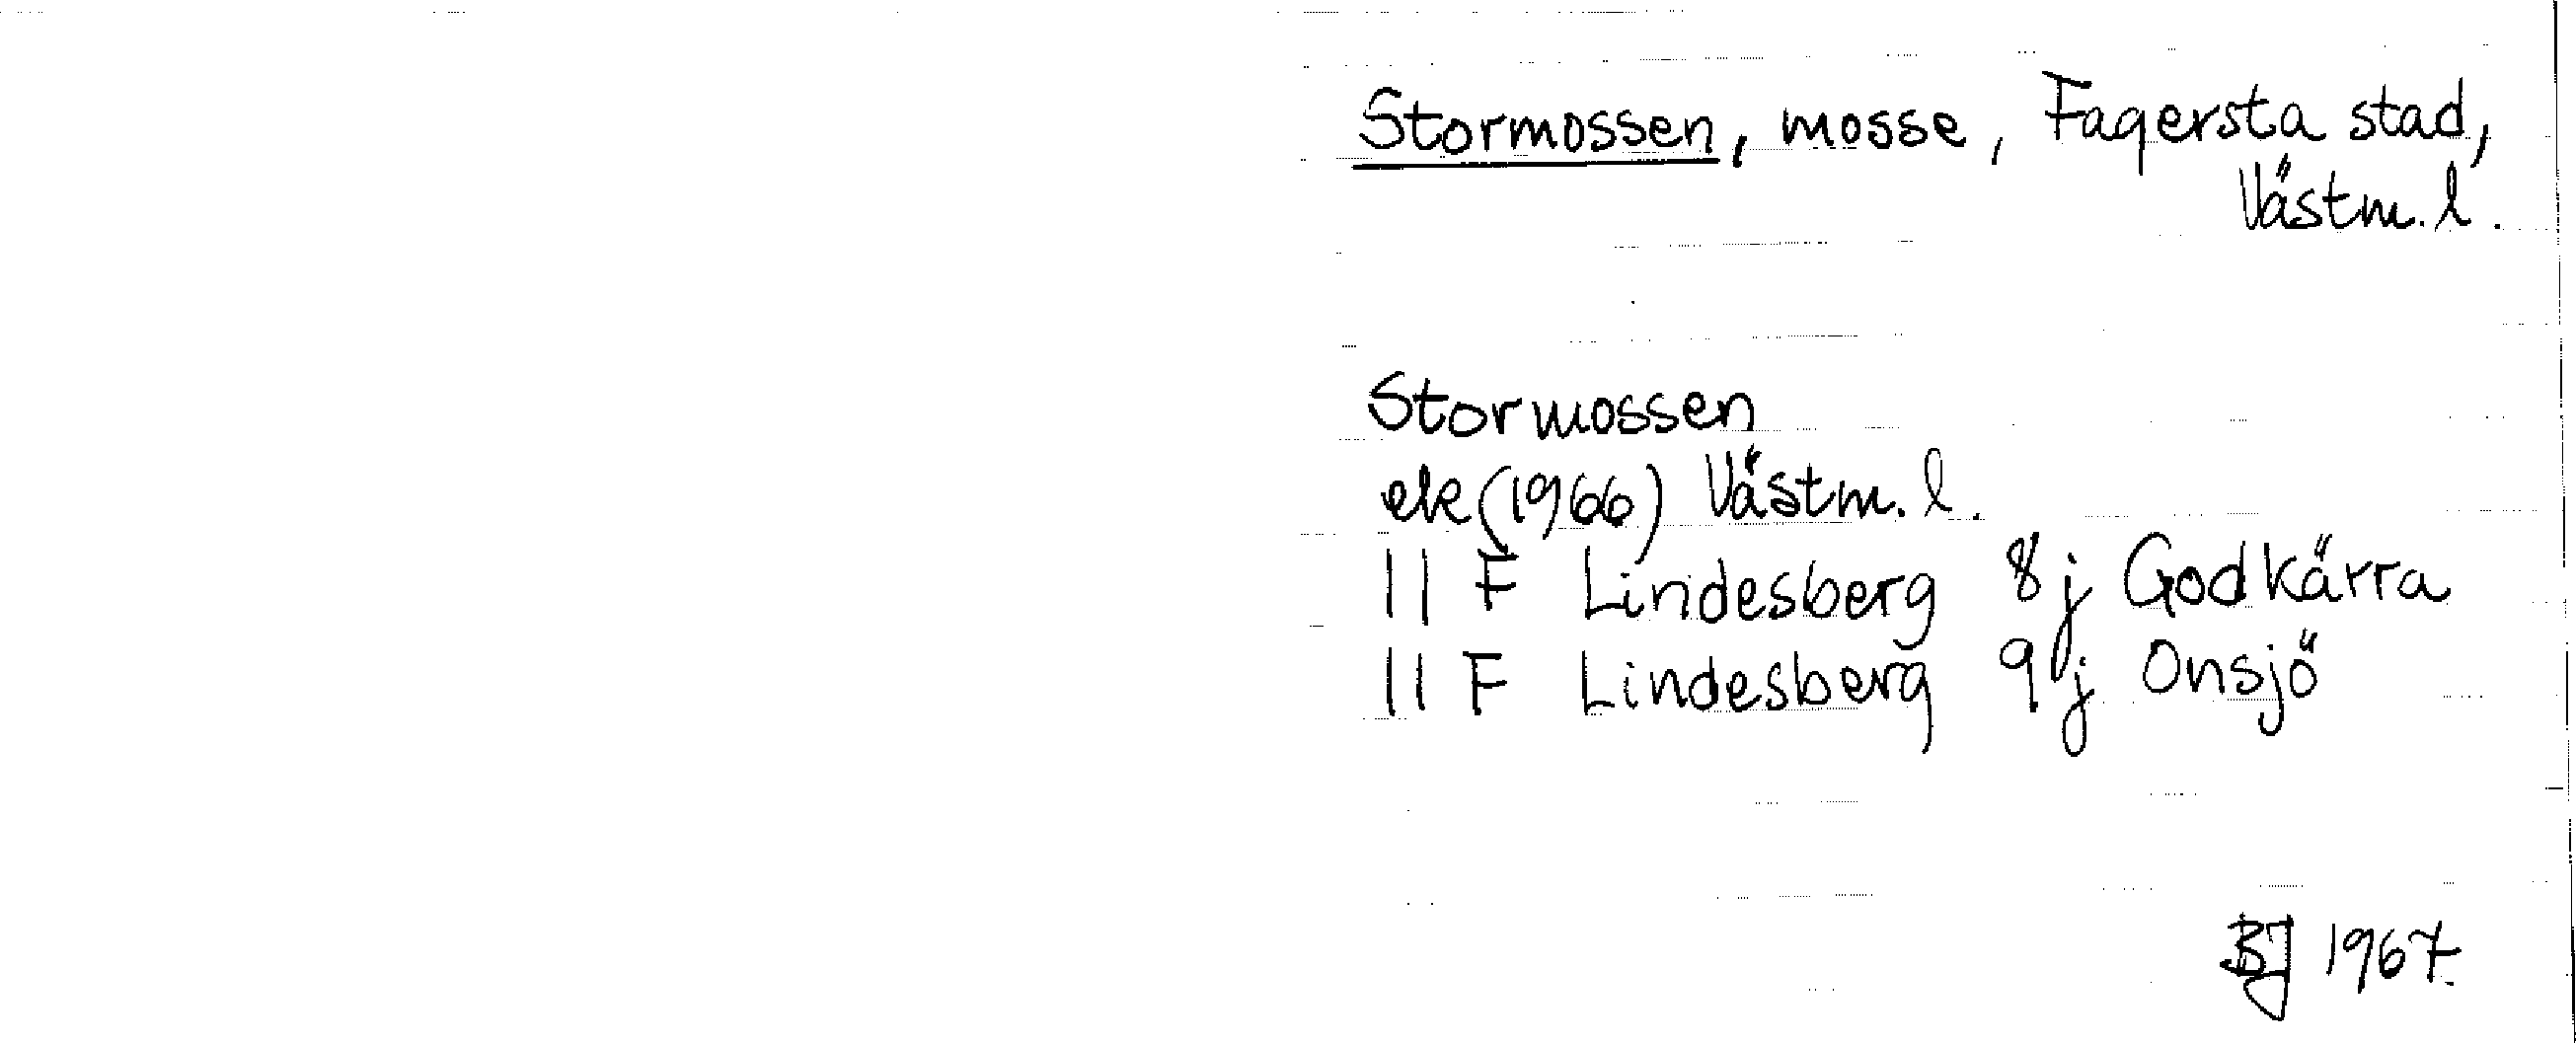 Stormossen, mosse, Fagersta stad,
Västm. l.
Stormossen
ek (1966) Västm. l.
11 F Lindesberg 8 j Godkärra
11 F Lindesberg 9 j Onsjö
BJ 1967